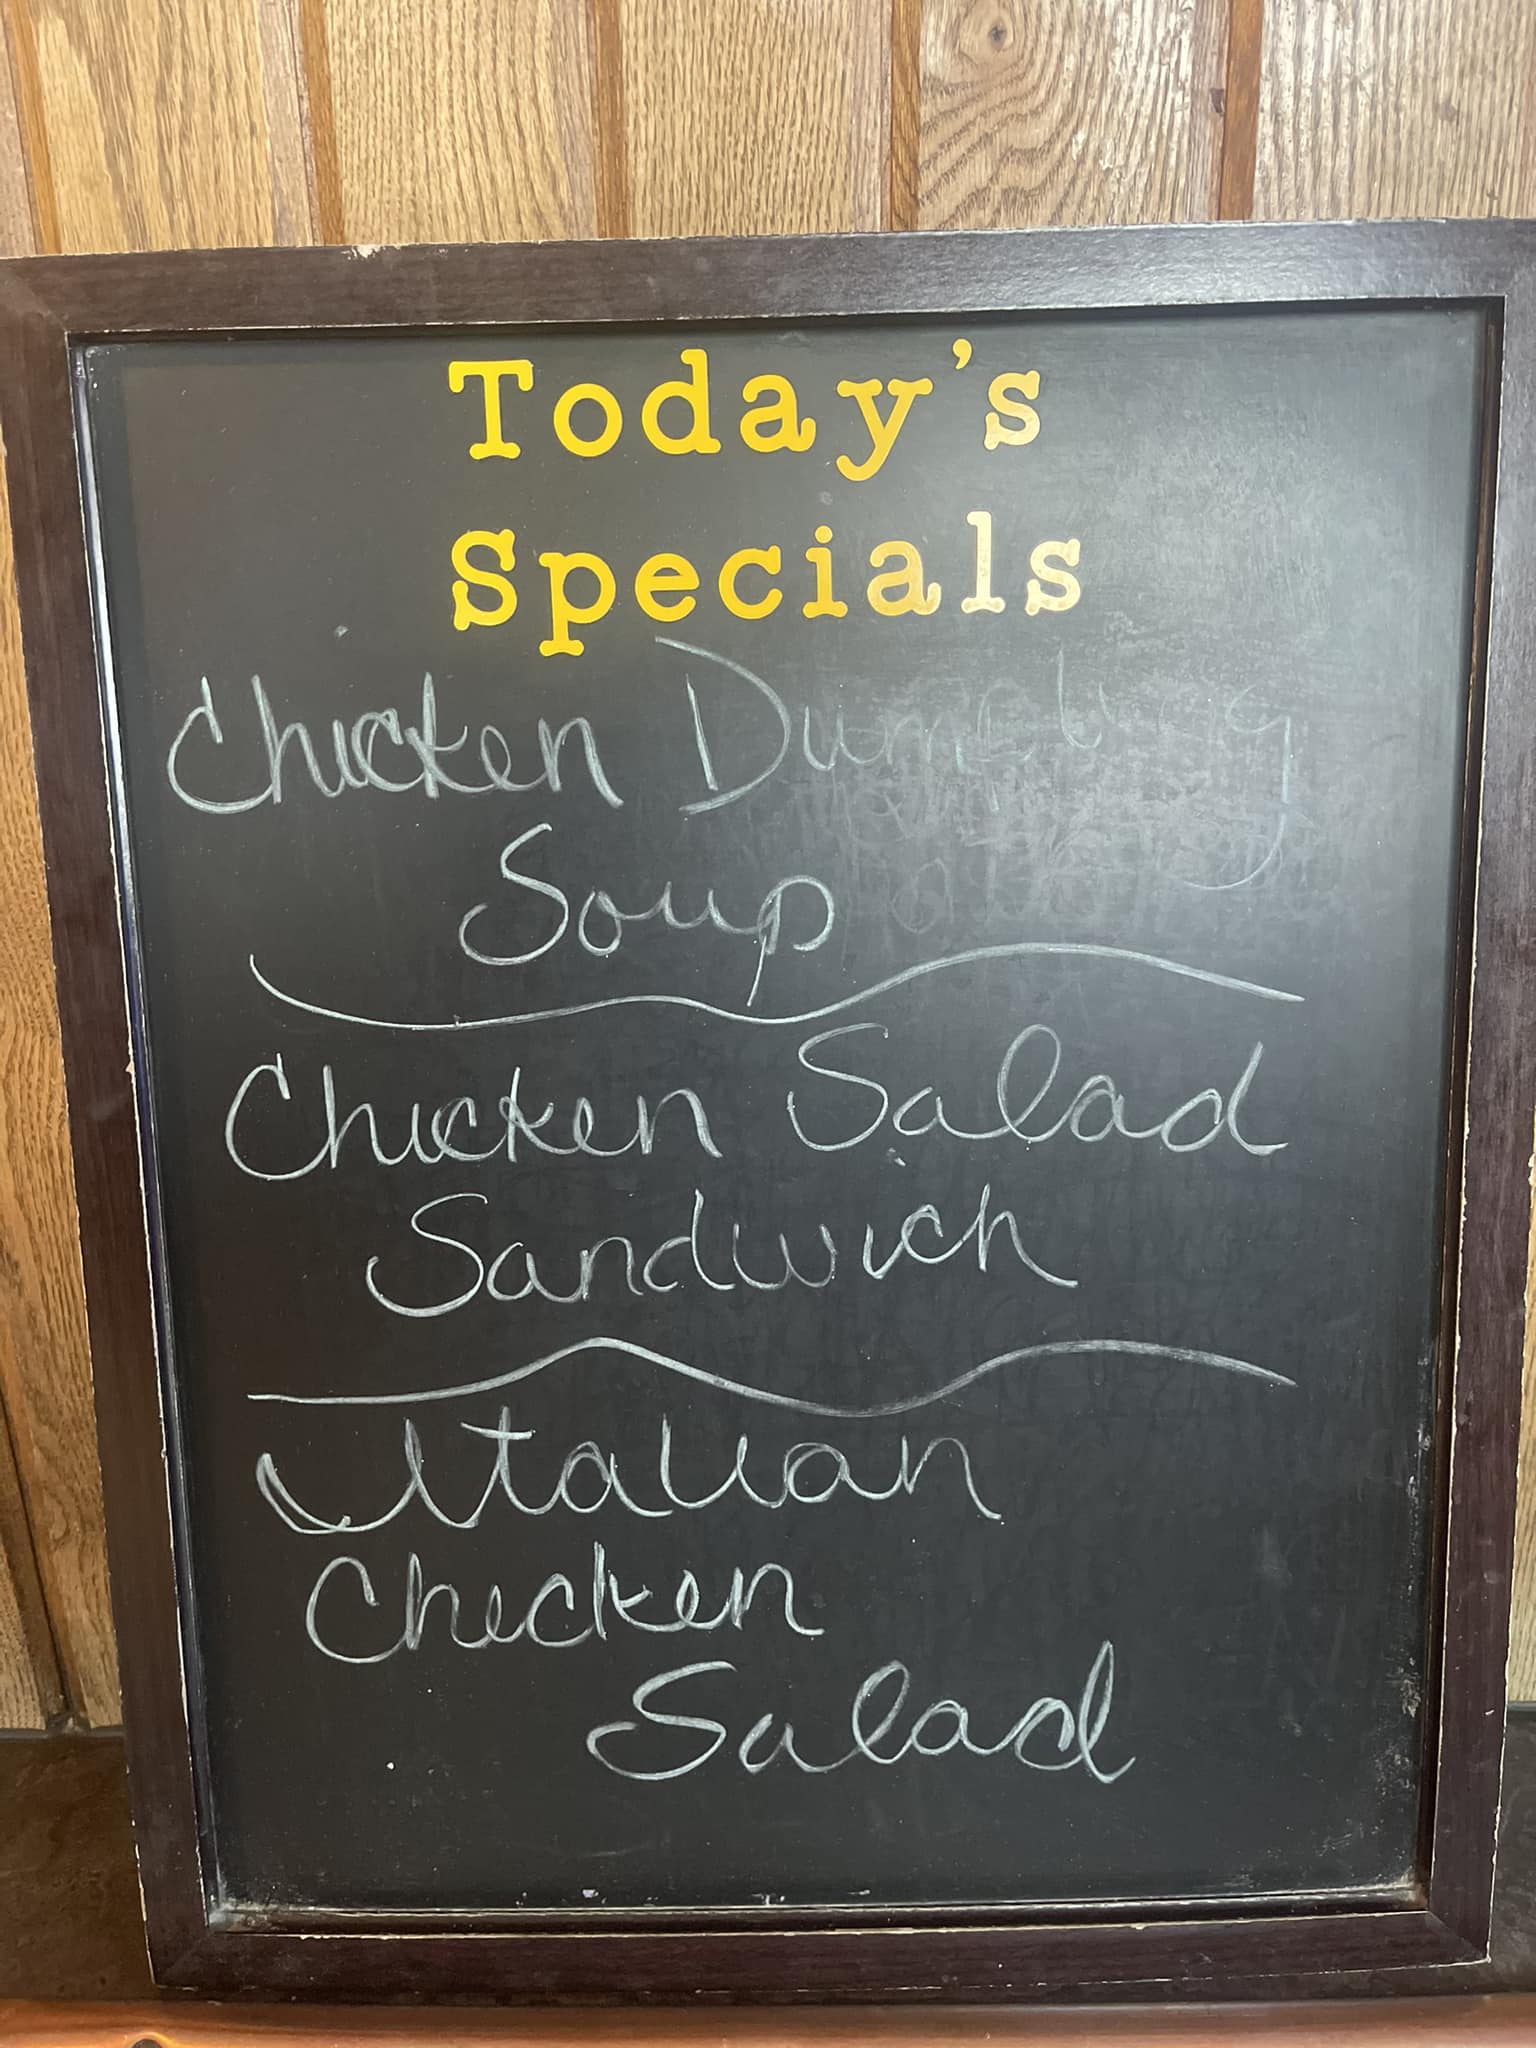 Today's
Specials
Chicken Dumpling
Soup
Chicken Salad
Sandwich
Italian
Chicken
Salad